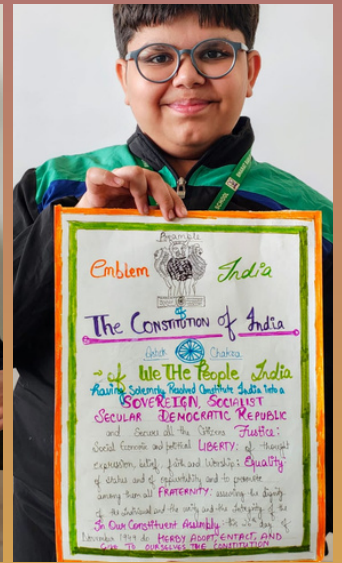 Preamble
Emblem India
of
The CONSTITUTION of India
Ashok Chakra
→ of WE THE PEOPLE India
having Solemnly Resolved Constitute India into a
SOVEREIGN, SOCIALIST
SECULAR DEMOCRATIC REPUBLIC
and Secures all the Citizens Justice:
Social Economic and political LIBERTY: of thought
expression, belief, faith and Worship: Equality
of status and of opportunity and to promote
among them all FRATERNITY: assuming the dignity
of the individual and the unity and the Integrity of the
In Our Constituent Assembly: the 26 day of
November 1949 do HERBY ADOPT, ENTACT, AND
GIVE TO OURSELVES THE CONSTITUTION